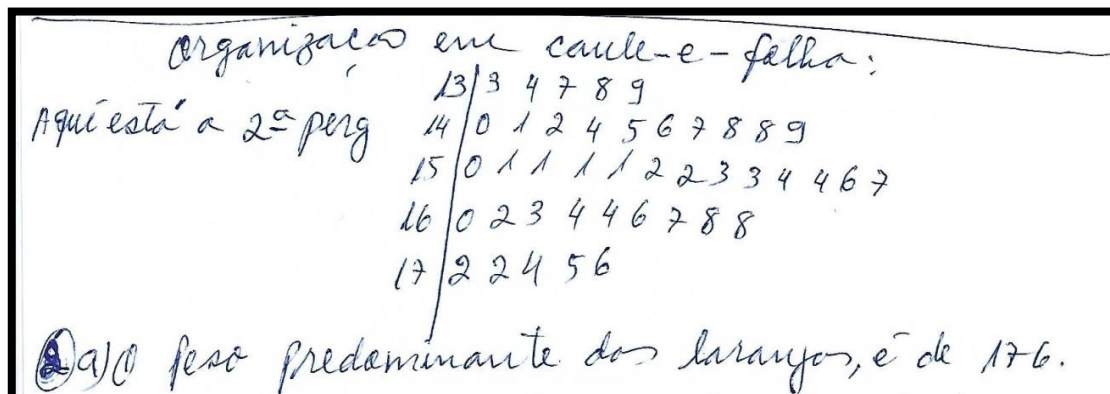 Organização em caule-e-folha:
13|3 4 7 8 9
Aqui está a 2ª perg
14|0 1 2 4 5 6 7 8 8 9
15|0 1 1 1 1 2 2 3 3 4 4 6 7
16|0 2 3 4 4 6 7 8 8
17|2 2 4 5 6
2 a) O peso predominante das laranjas, é de 176.